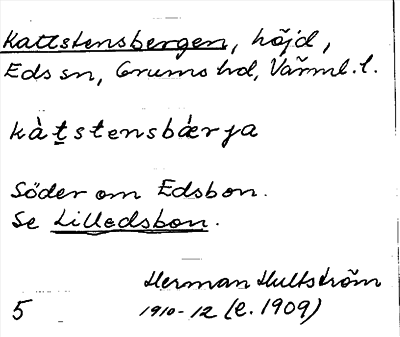 Kattstensbergen, höjd,
Eds sn, Grums hd, Värml. l.
kàt̠stensbǽrja
Söder om Edsbon.
Se Lilledsbon.
Herman Hultström
5 1910-12 (e. 1909)